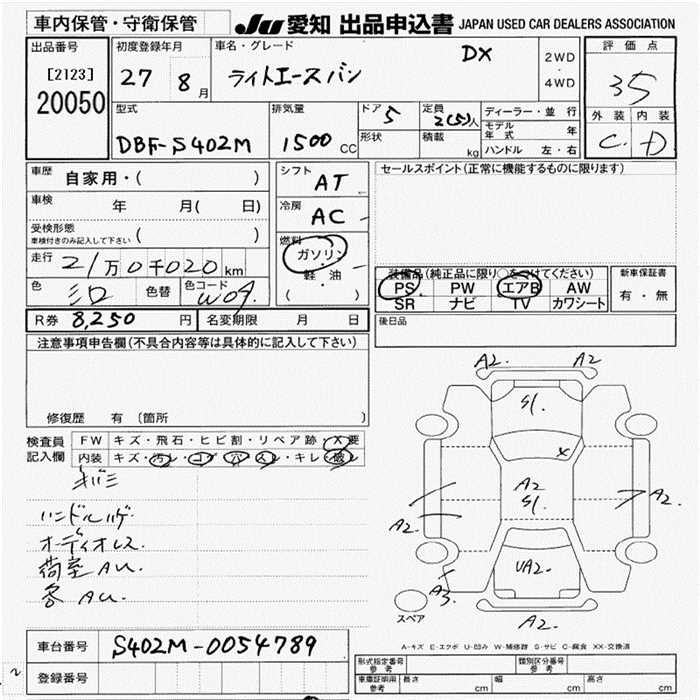 車内保管・守衛保管
JU 愛知 出品申込書 JAPAN USED CAR DEALERS ASSOCIATION
出品番号
[2123]
20050
初度登録年月
27 8月
車名・グレード
ライトエースバン DX
2WD
・
4WD
評価点
35
外装 内装
C D
型式
DBF-S402M
排気量
1500 CC
ドア 5
形状
定員 2(5)人
積載 kg
ディーラー・並行
モデル年式 年
ハンドル 左・右
車歴
自家用・( )
車検 年 月( 日)
受検形態
車検付きのみ記入して下さい ( )
走行 21万0千020km
色 シロ 色替 色コード W09
シフト AT
冷房 AC
燃料 ガソリン
軽・油
( )
セールスポイント(正常に機能するものに限ります)
装備品(純正品に限り○をつけてください)
PS PW エアB AW
SR ナビ TV カワシート
新車保証書
有・無
R券 8,250 円 名変期限 月 日
後日品
注意事項申告欄(不具合内容等は具体的に記入して下さい)
修復歴 有 (箇所 )
検査員
記入欄
FW キズ・飛石・ヒビ割・リペア跡・X要
内装 キズ・汚レ・コゲ・穴・スレ・キレ・破レ
キバミ
ハンドルハゲ
オーディオレス.
荷室AU.
客AU.
A2. A2
S1.
X
A2
S1.
A2. A2.
UA2.
A3.
A2.
スペア
A-キズ E-エクボ U-凹み W-補修跡 S-サビ C-腐食 XX-交換済
車台番号 S402M-0054789
登録番号
形式指定番号
参考
類別区分番号
参考
車庫証明用
参考
長さ cm 幅 cm 高さ cm